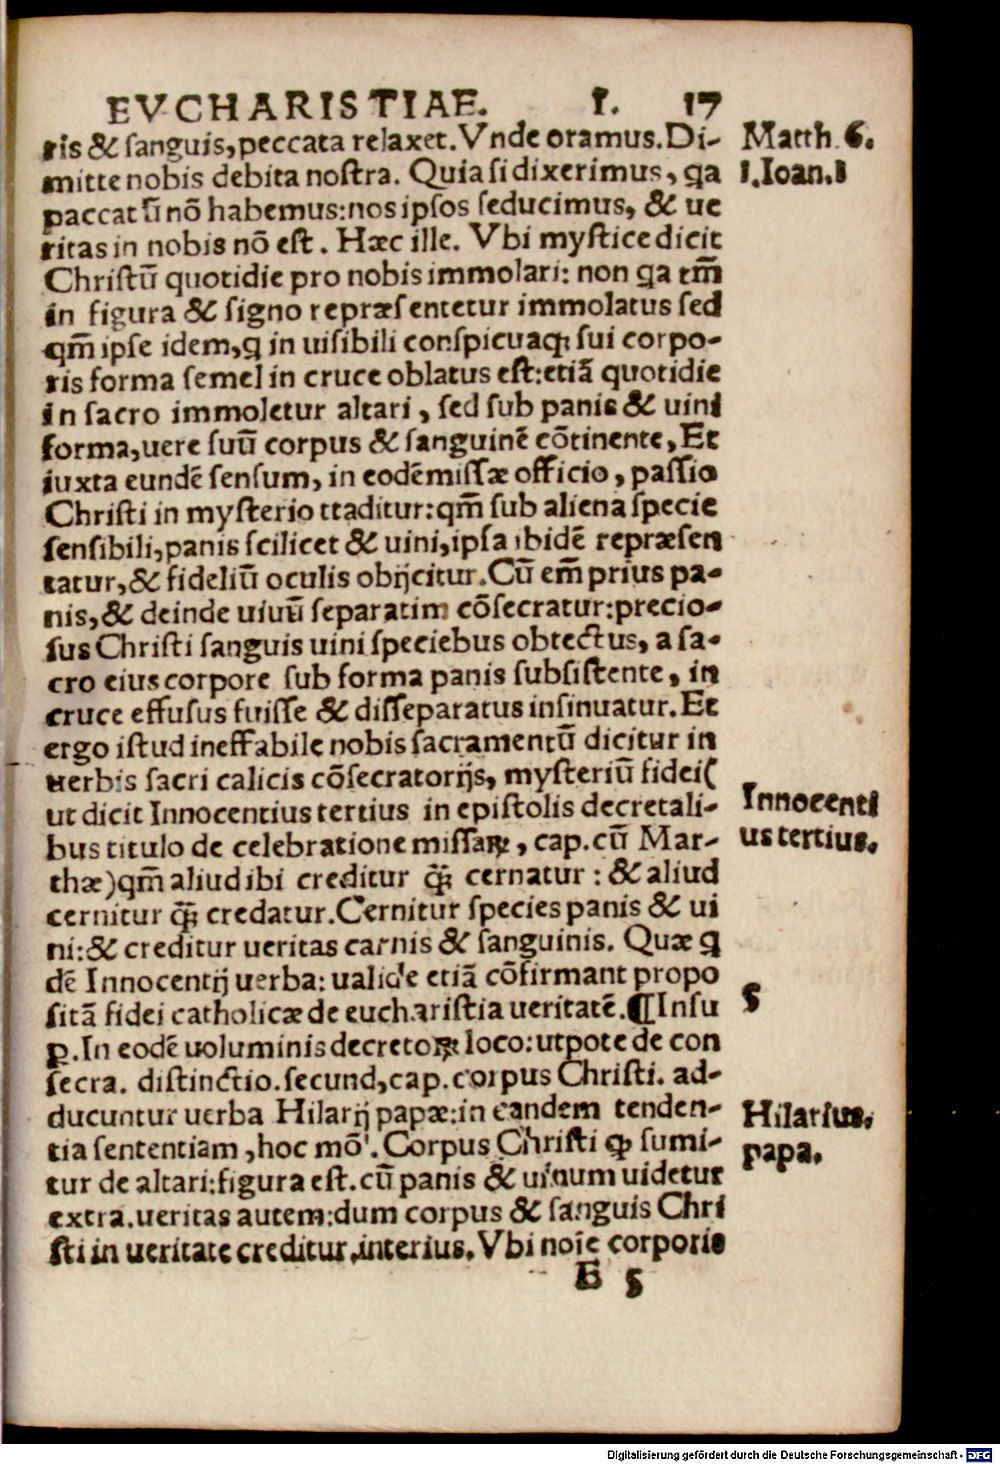 EVCHARISTIAE. I. 17
ris & sanguis, peccata relaxet. Vnde oramus. Di- Matth. 6.
mitte nobis debita nostra. Quia si dixerimus, qa 1. Ioan. 1
paccatū nō habemus: nos ipsos seducimus, & ue
ritas in nobis nō est. Hæc ille. Vbi mystice dicit
Christū quotidie pro nobis immolari: non qa tm̄
in figura & signo repræsentetur immolatus sed
qm̄ ipse idem, q in uisibili conspicuaq; sui corpo-
ris forma semel in cruce oblatus est: etiā quotidie
in sacro immoletur altari, sed sub panis & uini
forma, uere suū corpus & sanguinē cōtinente, Et
iuxta eundē sensum, in eodē missæ officio, passio
Christi in mysterio ttaditur: qm̄ sub aliena specie
sensibili, panis scilicet & uini, ipsa ibidē repræsen
tatur, & fideliū oculis obijcitur. Cū em̄ prius pa-
nis, & deinde uiuū separatim cōsecratur: precio-
sus Christi sanguis uini speciebus obtectus, a sa-
cro eius corpore sub forma panis subsistente, in
cruce effusus fuisse & disseparatus insinuatur. Et
ergo istud ineffabile nobis sacramentū dicitur in
uerbis sacri calicis cōsecratorijs, mysteriū fidei (
ut dicit Innocentius tertius in epistolis decretali- Innocenti
bus titulo de celebratione missaꝝ, cap. cū Mar- us tertius.
thæ) qm̄ aliud ibi creditur q̄ꝫ cernatur: & aliud
cernitur q̄ꝫ credatur. Cernitur species panis & ui
ni: & creditur ueritas carnis & sanguinis. Quæ q
dē Innocentij uerba: ualide etiā cōfirmant propo
sitā fidei catholicæ de eucharistia ueritatē. ¶ Insu 5
ꝑ. In eodē uoluminis decretoꝝ loco: utpote de con
secra. distinctio. secund, cap. corpus Christi. ad-
ducuntur uerba Hilarij papæ: in eandem tenden- Hilarius,
tia sententiam, hoc mō'. Corpus Christi ꝙ sumi- papa.
tur de altari: figura est. cū panis & uinum uidetur
extra. ueritas autem: dum corpus & sanguis Chri
sti in ueritate creditur, interius. Vbi noīe corporis
E 5
Digitalisierung gefördert durch die Deutsche Forschungsgemeinschaft - DFG